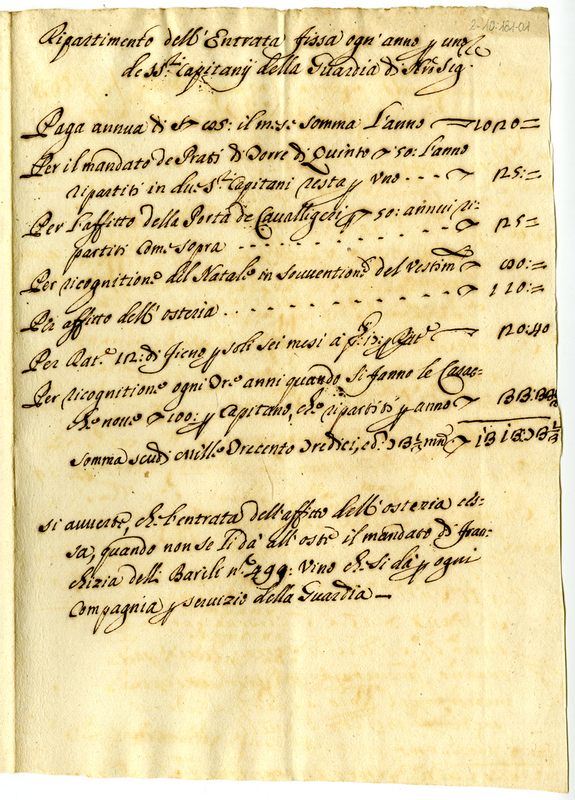 2-10:181-01
Ripartimento dell'Entrata fissa ogn'anno p uno
de SS.ri Capitanij della Guardia di N.ro Sig.
Paga annua di ▽ 85: il mese somma l'anno — 1020=
Per il mandato de Prati di Torre di Quinto ▽ 50: l'anno
ripartiti in due S.ri Capitani resta p uno - - - ▽ 25:=
Per l'affitto della Porta de Cavalligeri p ▽ 50: annui ri-
partiti come sopra - - - - - - - - - ▽ 25=
Per ricognitione del Natale in sovventione del Vestim.to ▽ 80:=
Per affitto dell'osteria - - - - - - - - - ▽ 110:=
Per Rat.e 112: di fieno p soli sei mesi à p Rat.e — 20:40
Per ricognitione ogni tre anni quando si fanno le Casac-
che nove ▽ 100: p Capitano, che ripartiti p anno ▽ 33:33⅓
Somma scudi Mille trecento tredici, e 73⅓ m.ta ▽ 1313:73⅓
si avverte, che l'entrata dell'affitto dell'osteria ces-
sa, quando non se li dà all'oste il mandato di fran-
chizia delli Barile n.o 499: Vino che si dà p ogni
Compagnia p servizio della Guardia —